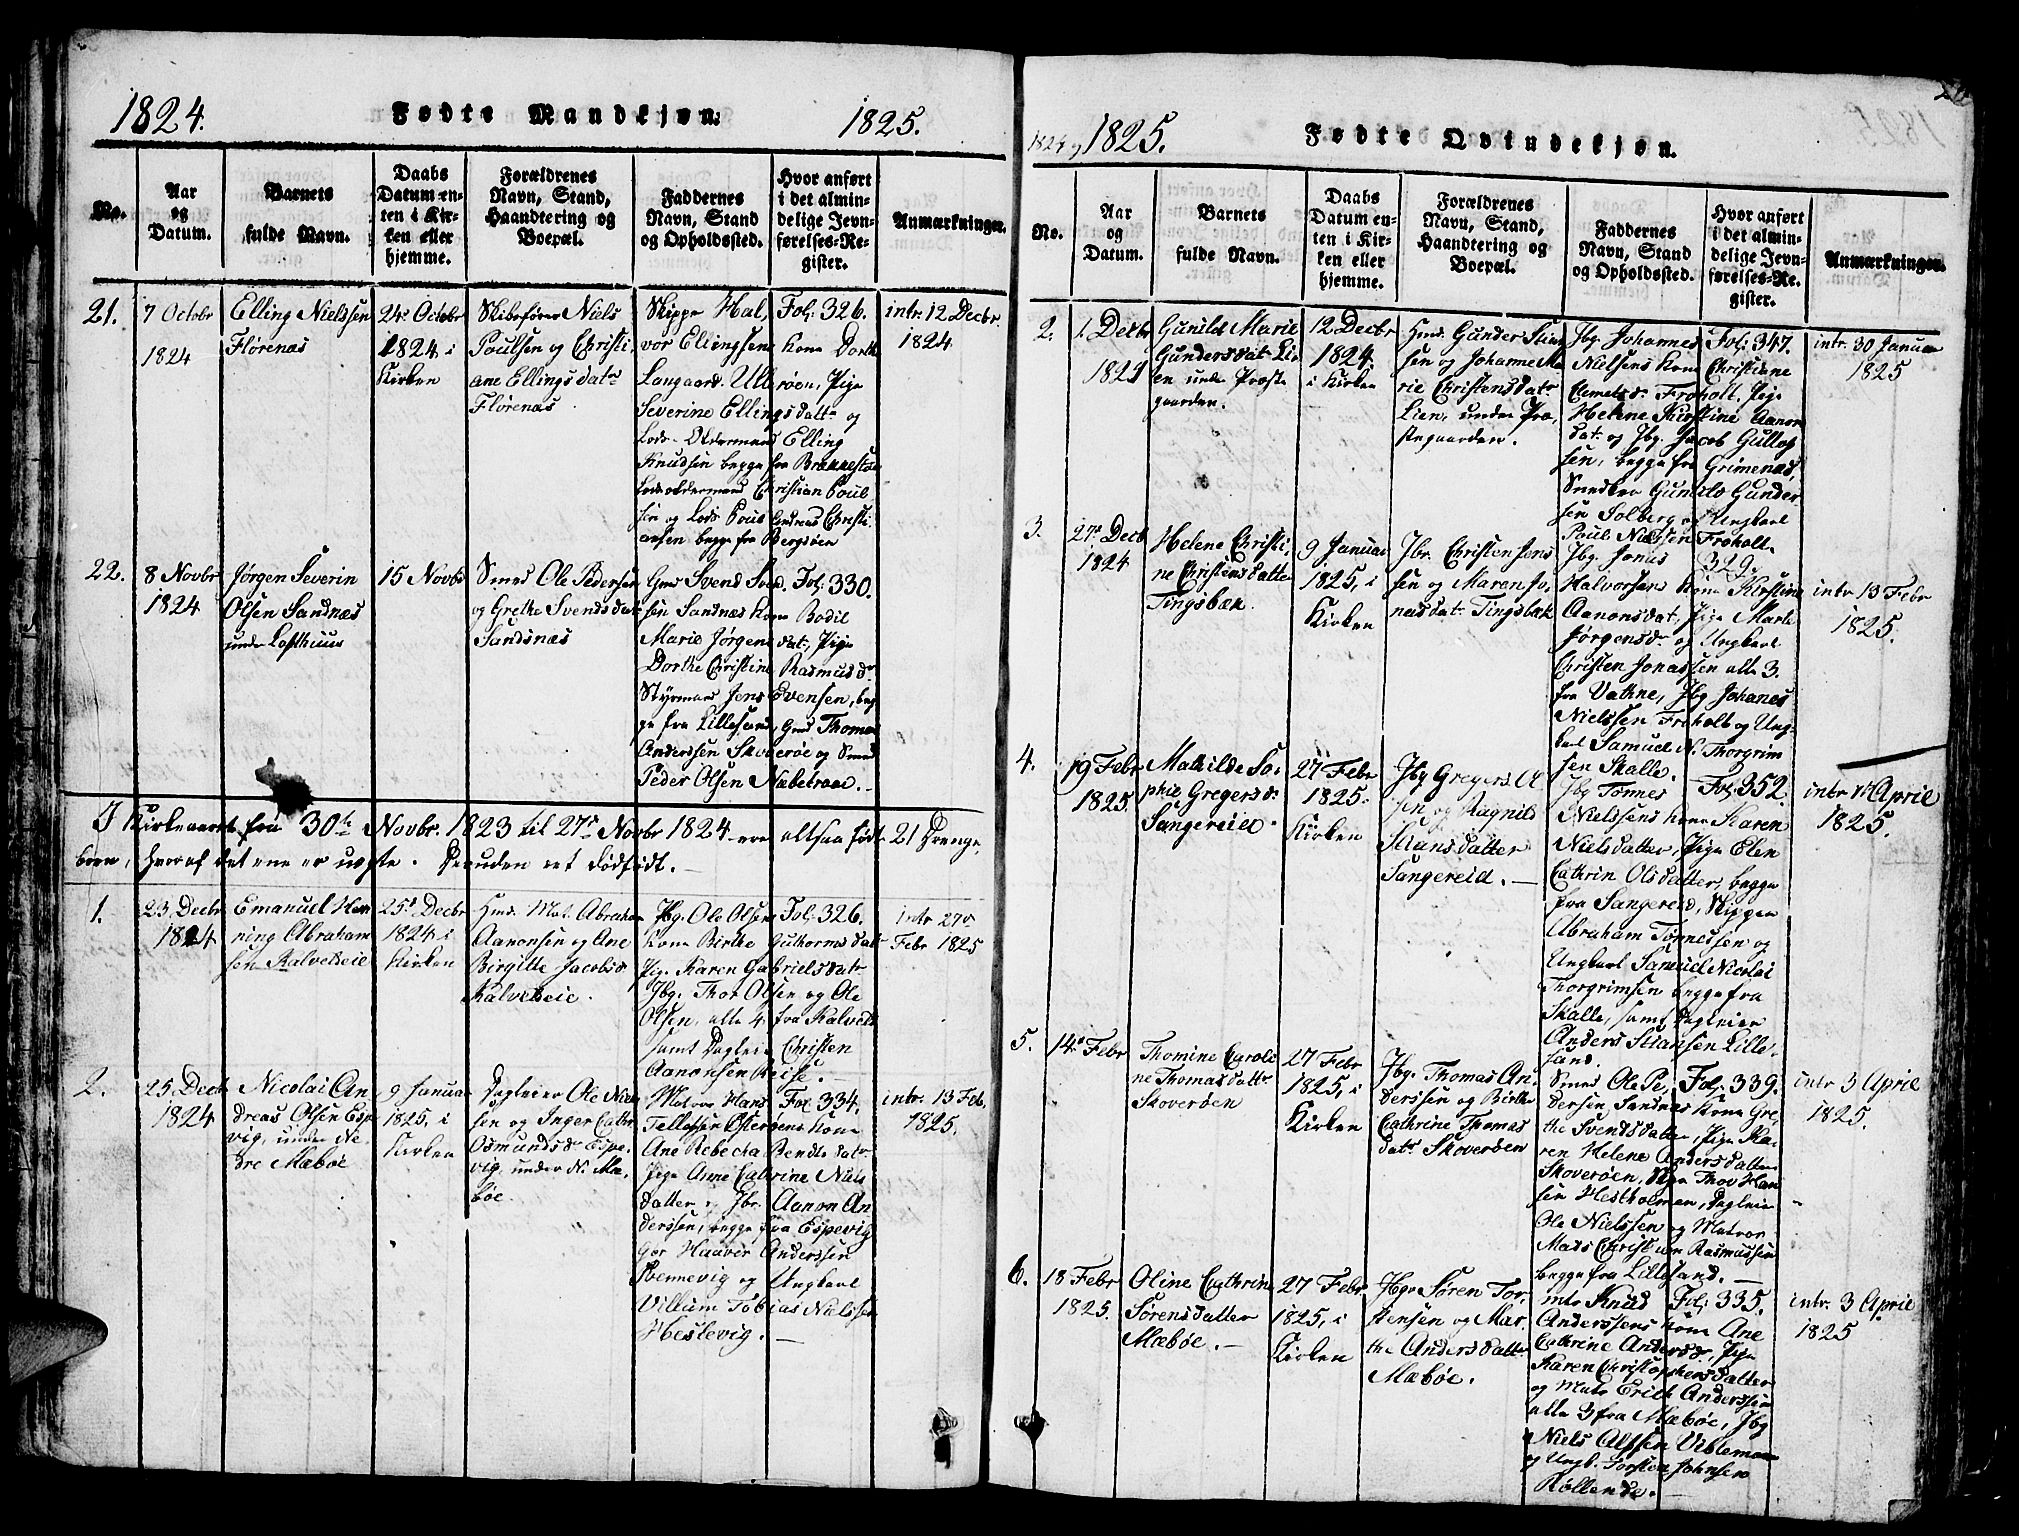 1824.
Fødte Mandkjøn.
1825.
No.
Aar
og
Datum.
Barnets
fulde Navn.
Daabs
Datum en-
ten i Kir-
ken eller
hjemme.
Forældrenes
Navn, Stand,
Haandtering og
Boepæl.
Faddernes
Navn, Stand
og Opholdssted.
Hvor anført
i det almin-
delige Jevn-
førelses-Re-
gister.
Anmærkninger.
21.
7 Octobr
1824
Elling Nielsen
Florenæs
24 Octobr
1824 i
Kirken
Skibsfører Niels
Poulsen og Christi-
ane Ellingsdatr
Florenæs
Skippr Hal-
vor Ellingsens Kone Dorthe
Langaard Ulvøen, Pige
Severine Ellingsdatr og
Lods-Oldermand Elling
Knudsen begge fra Brække
Lodsoldermand Christian Poul-
sen og Lods Poul Andreas Christi-
ansen begge fra Bergøen
Fol: 326.
intr. 12 Decbr
1824
22.
8 Novbr
1824
Jørgen Severin
Olsen Sandnæs
under Lofthuus
15 Novbr
Smed Ole Pedersen
og Grethe Svendsdatr
Sandsnæs
Gmd Svend
sen Sandnæs Kone Bodil
Marie Jørgensdat, Pige
Dorthe Christine Rasmusdr
Styrmand Jens Evensen, beg-
ge fra Lillesand, Gmd Thomas
Anderssen Skoverøe og Smed
Peder Olsen Næbetraae.
Fol: 330.
I Kirkeaaret fra 30te Novbr. 1823 til 27de Novbr 1824 ere altsaa født 21 Drenge-
børn, hvoraf det ene er uægte. Desuden eet dødfødt.
1.
23 Decbr
1824
Emanuel Hen-
ning Abraham-
sen Kalveheie
25de Decbr
1824 i
Kirken
Hmd. Mat. Abraham
Aanonsen og Ane
Birgitte Jacobsdr
Kalveheie.
Jbg. Ole Olsens
Kone Birthe Guthormsdatr
Pig. Karen Gabrielsdatr
Jbg. Thor Olsen og Ole
Olsen, alle 4 fra Kalveheie
samt Dagleier Christen
Aanonsen Heise.
Fol: 326.
intr 27de
Febr 1825
2.
25 Decbr
1824
Nicolai An-
dreas Olsen Espe-
vig, under Ne-
dre Mæbøe
9 Januar
1825, i
Kirken
Dagleier Ole Niel-
sen og Inger Cathr.
Osmundsdr Espe-
vig, under N. Mæ-
bøe.
Matros Hans
Tellefsen Østergens Kone
Ane Rebecka Bendtsdatr
Pige Anne Cathrine Niels-
datter, Jbr. Aanon An-
derssen, begge fra Espevig
Haaver Anderssen
Svennevig og Ungkarl
Villum Tobias Nielssen
Heslevig.
Fol: 334.
intr. 13 Feb.
1825.
1824 og 1825.
Fødte Qvindekjøn.
No.
Aar
og
Datum.
Barnets
fulde Navn.
Daabs
Datum en-
ten i Kir-
ken eller
hjemme.
Forældrenes
Navn, Stand,
Haandtering og
Boepæl.
Faddernes
Navn, Stand
og Opholdssted.
Hvor anført
i det almin-
delige Jevn-
førelses-Re-
gister.
Anmærkninger.
2.
1. Decbr
1824
Gunild Marie
Gundersdat Li-
en under Præste-
gaarden.
12 Decbr
1824.
i Kirken
Hmd. Gunder Stian-
sen og Johanne Ma-
rie Christensdatr
Lien, under Præ-
stegaarden.
Jbg. Johannes
Nielsens Kone Christiane
Clemetsd. Froholt, Pige
Helene Kirstine Aanon-
dat og Jbg. Jacob Gullof-
sen, begge fra Grimenæs,
Snedker Gunder
sen Solberg og Ungkarl
Poul Nielssen Froholt.
Fol: 347.
intr. 30 Januar
1825
3.
27de Decb
1824
Helene Christi-
ne Christensdatter
Tingsbæk.
9 Januar
1825, i
Kirken
Jbr. Christen Jens-
sen og Maren Jo-
næsdatr Tingsbæk
Jbg. Jonas
Halvorsens Kone Kirstine
Aanonsdat, Pige Marte
Jørgensdr og Ungkarl
Christen Jonassen alle 3
fra Vathne, Jbg Johanes
Nielssen Froholt og Ung-
karl Samuel N. Thorgrim-
sen Skalle.
329.
intr 13 Febr
1825.
4.
19 Febr
1825.
Mathilde So-
phie Gregersdr
Sangereid.
27 Febr
1825.
Kirken
Jbg Gregers Ol-
sen og Ragnild
Stiansdatter
Sangereid.
Jbg Tønnes
Nielssens Kone Karen
Nielsdatter, Pige Elen
Cathrin Olsdatter, begge
fra Sangereid, Skipper
Abraham Tønnessen og
Ungkarl Samuel Nicolai
Thorgrimsen begge fra
Skalle, samt Dagleier
Anders Stiansen Lille-
sand.
Fol: 352.
intr 14 April
1825.
5.
14de Febr
Thomine Caroli-
ne Thomasdattr
Skoverøen
27 Febr
1825, i
Kirken
Jbg. Thomas An-
derssen og Birthe
Cathrine Thomas-
datr Skoverøen
Smed Ole Pe-
dersen, Sandnæs Kone Gre-
the Svendsdatter, Pige Ka-
ren Helene Andersdatter
Skoverøen, Thor Han-
sen Hestholmen, Dagleier
Ole Nielssen og Matros
Mads Christian Rasmussen
begge fra Lillesand.
Fol: 339.
intr 3 April
1825.
6.
18 Febr
1825.
Oline Cathrine
Sørensdatter
Mæbøe.
27 Febr
1825, i
Kirken
Jbgr Søren Tor-
stensen og Mar-
the Andersdatter
Mæbøe.
Knud
Anderssens Kone Ane
Cathrine Andersdr, Pige
Karen Christophersdatter
og Matr Erich Anderssen
alle 3 fra Mæbøe, Jbg
Niels Alfsen Viblemoen
og Ungk. Torsten Johnsen
Røllende.
Fol: 335.
intr. 3 April
1825